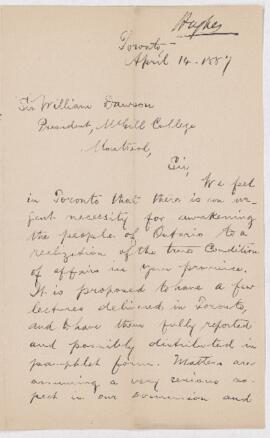 Hughes
Toronto
April 14 - 1887
Sir William Dawson
President, McGill College
Montreal,
Sir,
We feel
in Toronto that there is an ur-
gent necessity for awakening
the people of Ontario to a
realization of the true Condition
of affairs in your province.
It is proposed to have a few
lectures delivered in Toronto,
and to have them fully reported
and possibly distributed in
pamphlet form. Matters are
assuming a very serious as-
pect in our Dominion and